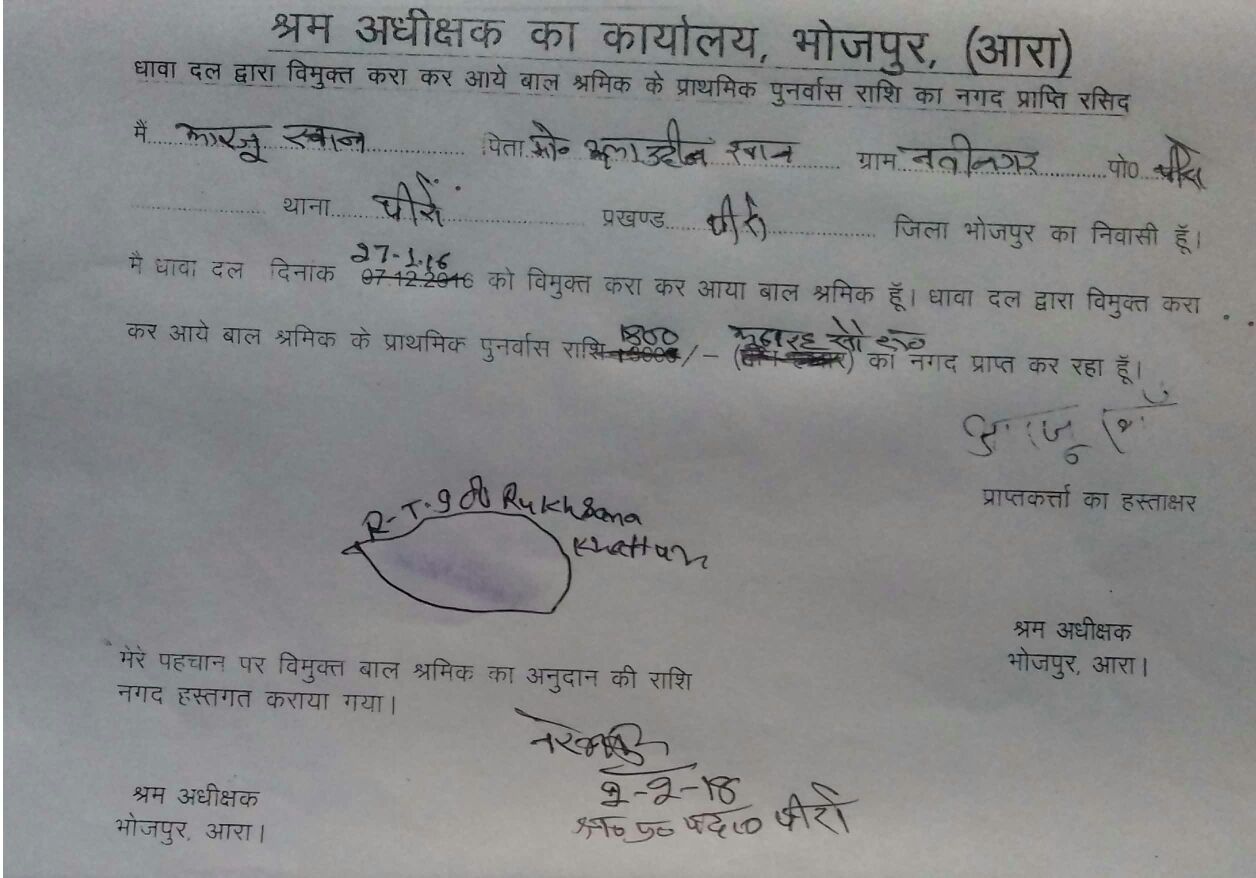 श्रम अधीक्षक का कार्यालय, भोजपुर, (आरा)
धावा दल द्वारा विमुक्त करा कर आये बाल श्रमिक के प्राथमिक पुनर्वास राशि का नगद प्राप्ति रसिद
मैं.... आरजू खान ................ पिता मो० अलाउद्दीन खान ...... ग्राम ............ पो० पीरो
.................. थाना...... पीरों .................. प्रखण्ड...... पीरो ............... जिला भोजपुर का निवासी हूँ।
27-1-16
मै धावा दल दिनांक 07.12.2016 को विमुक्त करा कर आया बाल श्रमिक हूँ। धावा दल द्वारा विमुक्त करा
1800 अठारह सौ रू०
कर आये बाल श्रमिक के प्राथमिक पुनर्वास राशि /– ( ) का नगद प्राप्त कर रहा हूँ।
प्राप्तकर्त्ता का हस्ताक्षर
R-T-9 Of Rukhsana
Khattun
श्रम अधीक्षक
भोजपुर, आरा।
मेरे पहचान पर विमुक्त बाल श्रमिक का अनुदान की राशि
नगद हस्तगत कराया गया।
2-2-18
श्र० प्र० पदा० पीरो
श्रम अधीक्षक
भोजपुर, आरा।